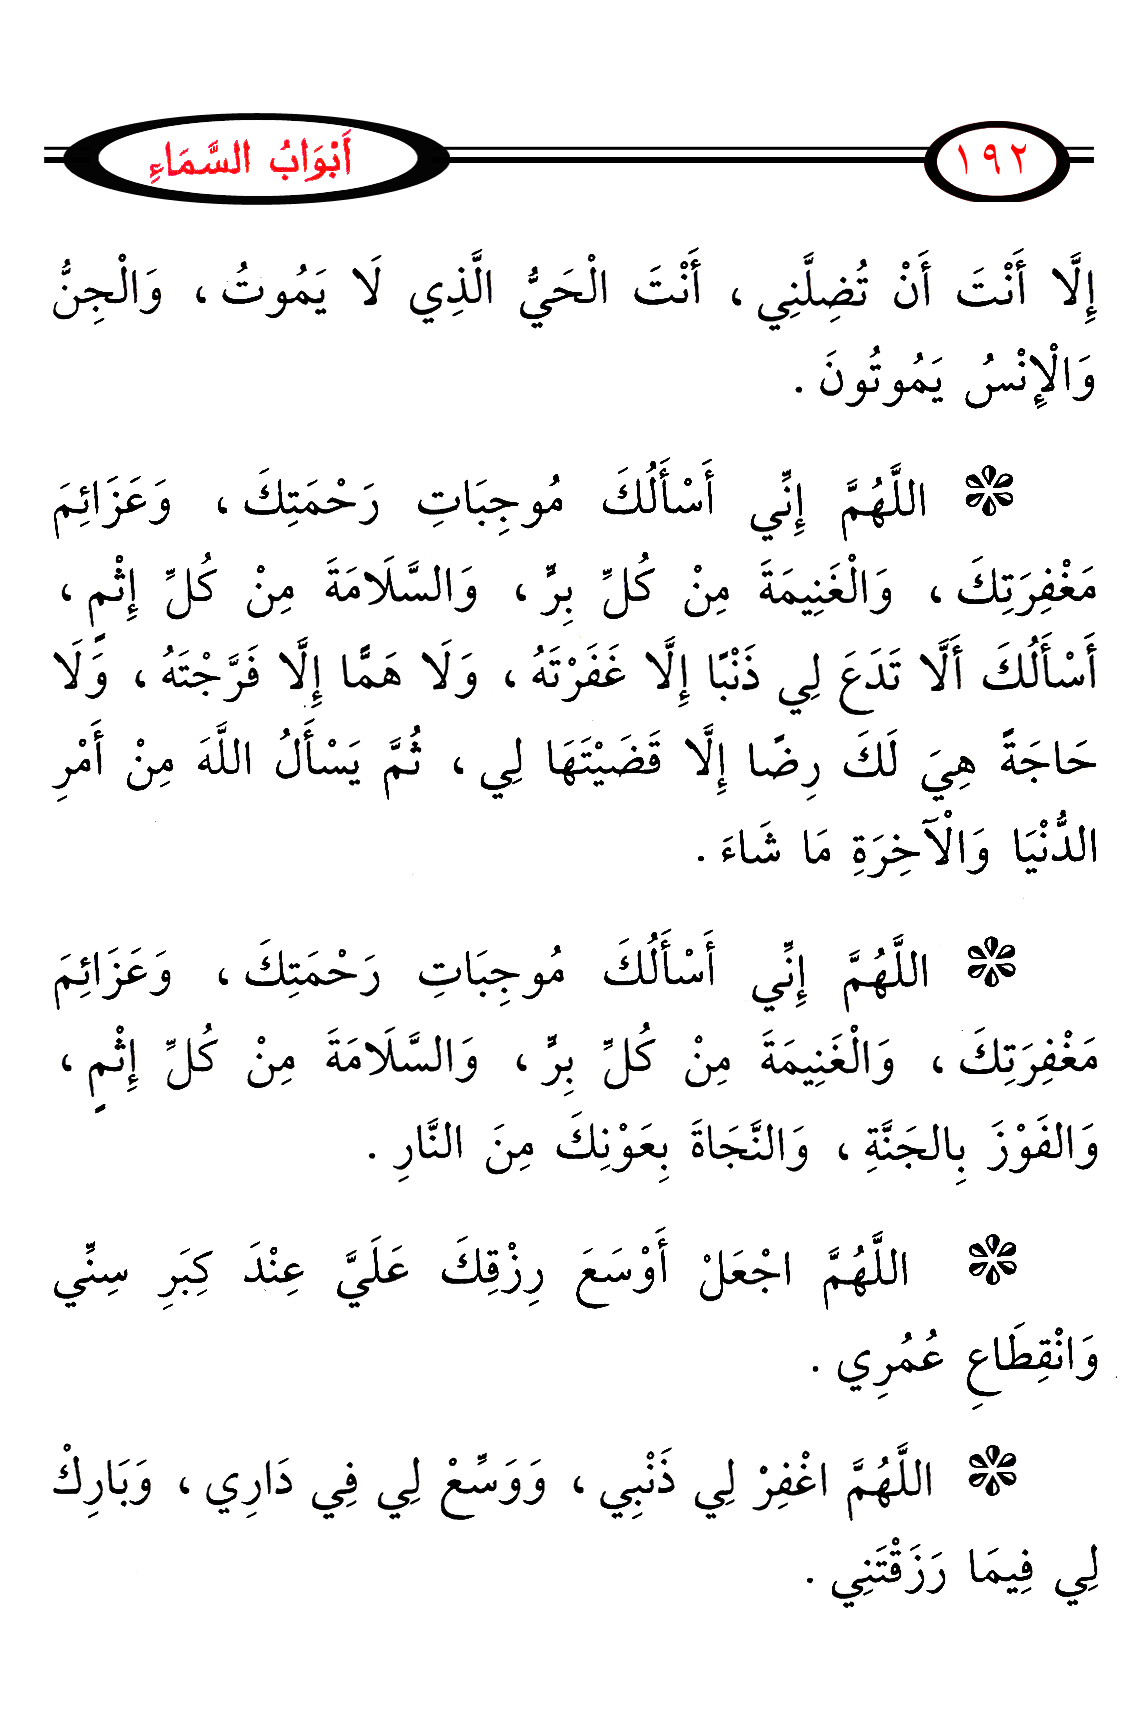 ١٩٢
أَبْوَابُ السَّمَاءِ
إِلَّا أَنْتَ أَنْ تُضِلَّنِي ، أَنْتَ الْحَيُّ الَّذِي لَا يَمُوتُ ، وَالْجِنُّ
وَالْإِنْسُ يَمُوتُونَ .
اللَّهُمَّ إِنِّي أَسْأَلُكَ مُوجِبَاتِ رَحْمَتِكَ ، وَعَزَائِمَ
مَغْفِرَتِكَ ، وَالْغَنِيمَةَ مِنْ كُلِّ بِرٍّ ، وَالسَّلَامَةَ مِنْ كُلِّ إِثْمٍ ،
أَسْأَلُكَ أَلَّا تَدَعَ لِي ذَنْبًا إِلَّا غَفَرْتَهُ ، وَلَا هَمًّا إِلَّا فَرَّجْتَهُ ، وَلَا
حَاجَةً هِيَ لَكَ رِضًا إِلَّا قَضَيْتَهَا لِي ، ثُمَّ يَسْأَلُ اللَّهَ مِنْ أَمْرِ
الدُّنْيَا وَالْآخِرَةِ مَا شَاءَ .
اللَّهُمَّ إِنِّي أَسْأَلُكَ مُوجِبَاتِ رَحْمَتِكَ ، وَعَزَائِمَ
مَغْفِرَتِكَ ، وَالْغَنِيمَةَ مِنْ كُلِّ بِرٍّ ، وَالسَّلَامَةَ مِنْ كُلِّ إِثْمٍ ،
وَالفَوْزَ بِالجَنَّةِ ، وَالنَّجَاةَ بِعَوْنِكَ مِنَ النَّارِ .
اللَّهُمَّ اجْعَلْ أَوْسَعَ رِزْقِكَ عَلَيَّ عِنْدَ كِبَرِ سِنِّي
وَانْقِطَاعِ عُمُرِي .
اللَّهُمَّ اغْفِرْ لِي ذَنْبِي ، وَوَسِّعْ لِي فِي دَارِي ، وَبَارِكْ
لِي فِيمَا رَزَقْتَنِي .